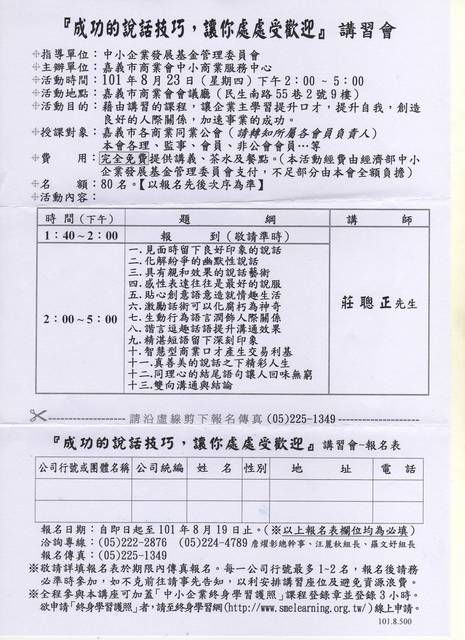 『成功的說話技巧，讓你處處受歡迎』講習會
✧指導單位：中小企業發展基金管理委員會
✧主辦單位：嘉義市商業會中小商業服務中心
✧活動時間：101 年 8 月 23 日（星期四）下午 2：00 ~ 5：00
✧活動地點：嘉義市商業會會議廳（民生南路 55 巷 2 號 9 樓）
✧活動目的：藉由講習的課程，讓企業主學習提升口才，提升自我，創造
良好的人際關係，加速事業的成功。
✧授課對象：嘉義市各商業同業公會（請轉知所屬各會員負責人）
本會各理、監事、會員、非公會會員…等
✧費　　用：完全免費提供講義、茶水及餐點。（本活動經費由經濟部中小
企業發展基金管理委員會支付，不足部分由本會全額負擔）
✧名　　額：80 名。【以報名先後次序為準】
✧活動內容：
時 間（下午）　題　綱　講　師
1：40~2：00　報　到（敬請準時）
2：00~5：00
一.見面時留下良好印象的說話
二.化解紛爭的幽默性說話
三.具有親和效果的說話藝術
四.感性表達往往是最好的說服
五.貼心創意語意造就情趣生活
六.激勵話術可以化腐朽為神奇
七.生動行為語言潤飾人際關係
八.諧言逗趣話語提升溝通效果
九.精湛短語留下深刻印象
十.智慧型商業口才產生交易利基
十一.真善美的說話之下精彩人生
十二.同理心的結尾語句讓人回味無窮
十三.雙向溝通與結論
莊聰正先生
請沿虛線剪下報名傳真 (05)225-1349
『成功的說話技巧，讓你處處受歡迎』講習會-報名表
公司行號或團體名稱　公司統編　姓　名　性別　地　址　電　話
報名日期：自即日起至 101 年 8 月 19 日止。（※以上報名表欄位均為必填）
洽詢專線：(05)222-2876　(05)224-4789 詹燿彰總幹事、汪麗秋組長、羅文妤組長
報名傳真：(05)225-1349
※敬請詳填報名表於期限內傳真報名。每一公司行號最多 1~2 名，報名後請務
必準時參加，如不克前往請事先告知，以利安排講習座位及避免資源浪費。
※全程參與本講座可加蓋「中小企業終身學習護照」課程登錄章並登錄 3 小時。
欲申請「終身學習護照」者，請至終身學習網(http://www.smelearning.org.tw/)線上申請。
101.8.500